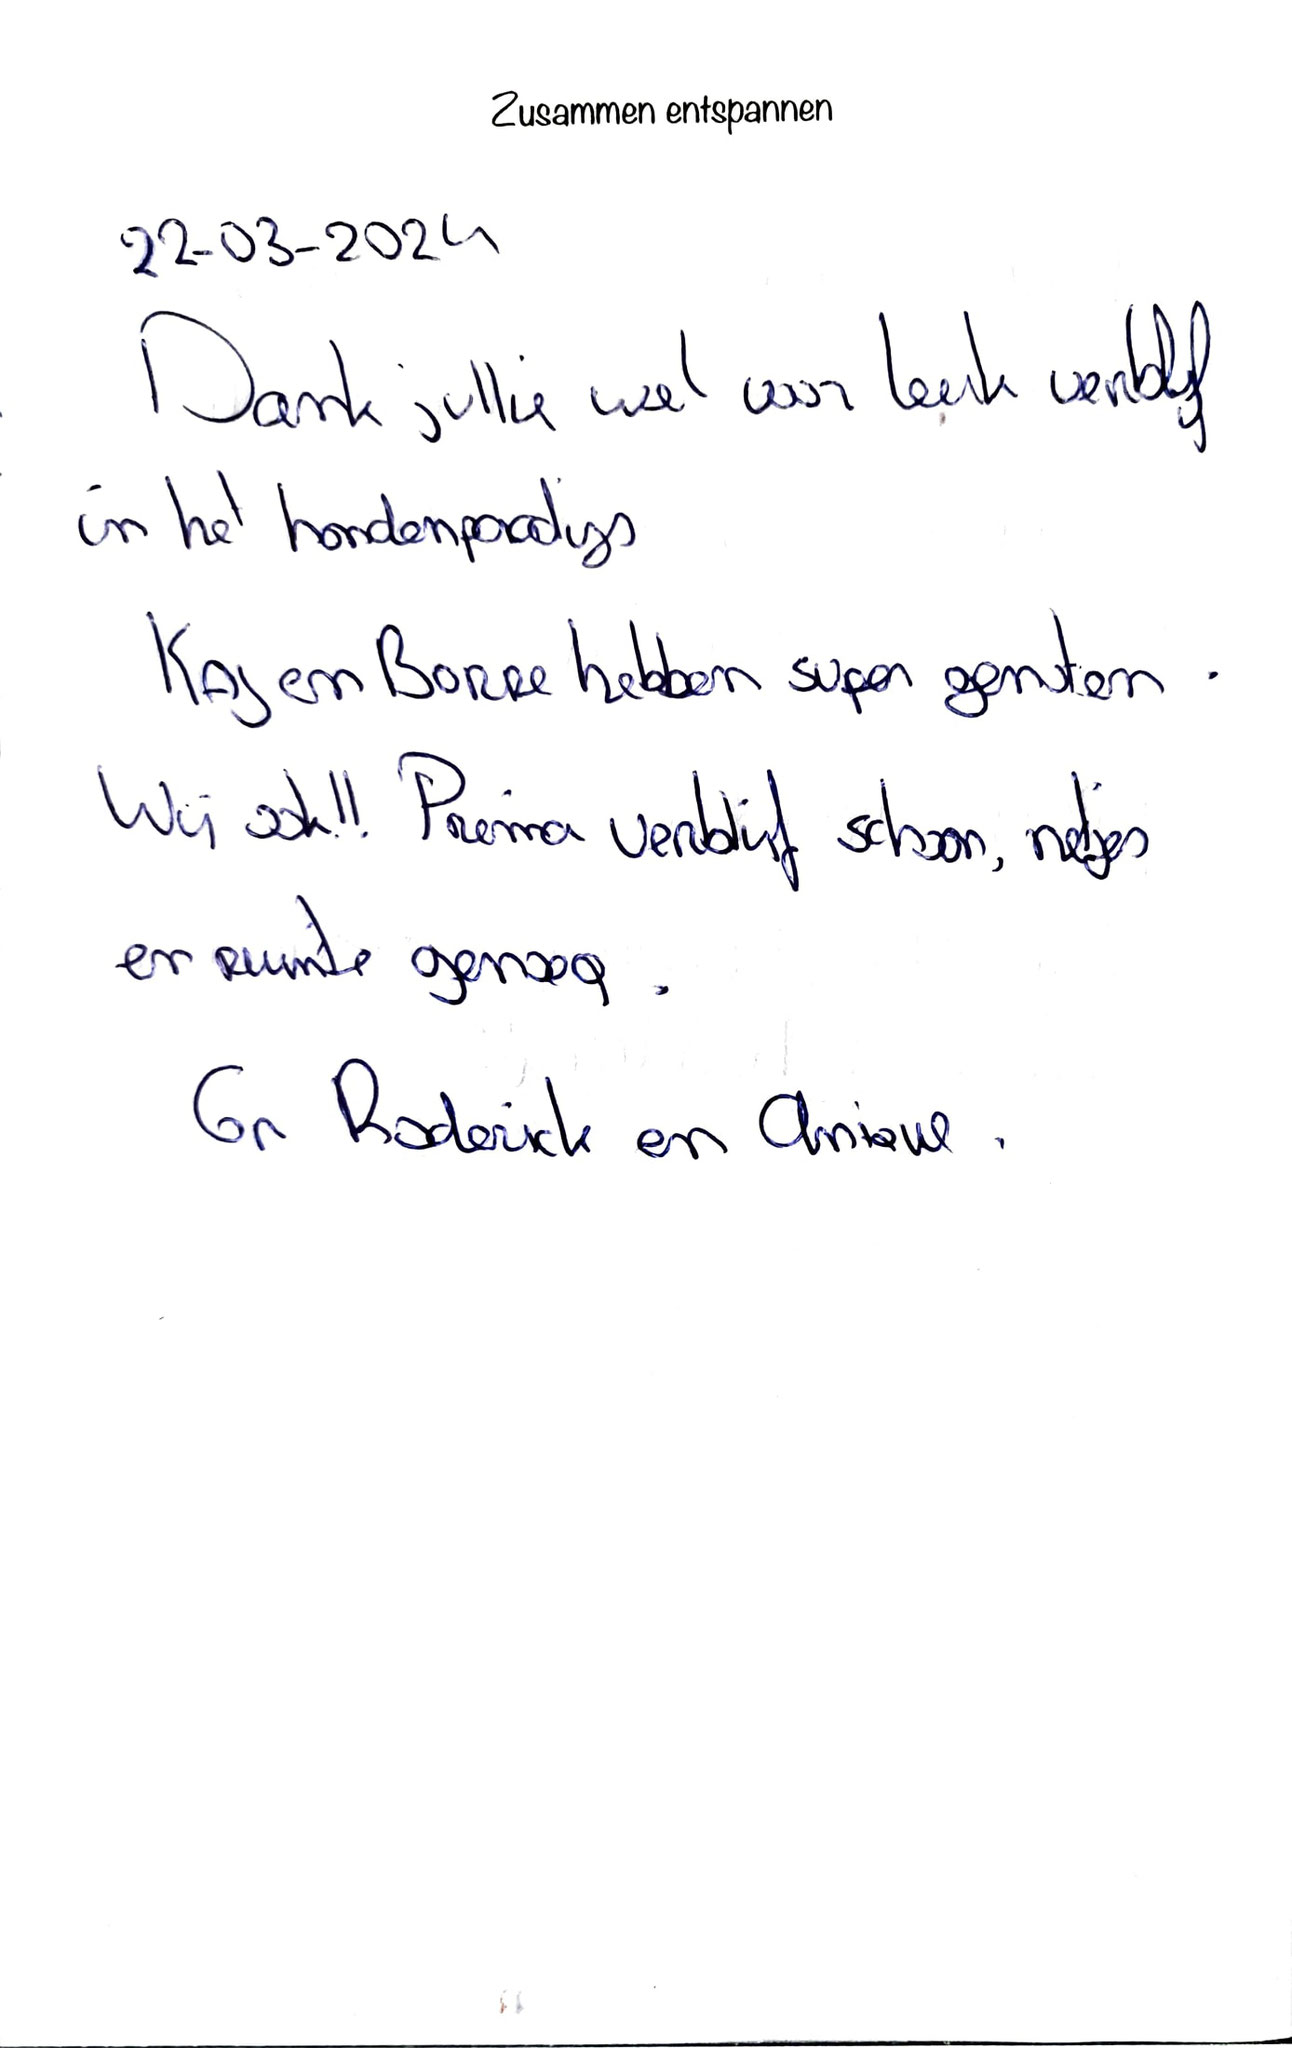 Zusammen entspannen
22-03-2024
Dank jullie wel voor leuk verblijf
in het hondenparadijs
Kay en Borre hebben super genoten.
Wij ook!! Prima verblijf schoon, netjes
en ruimte genoeg.
Gr Roderick en Anique.